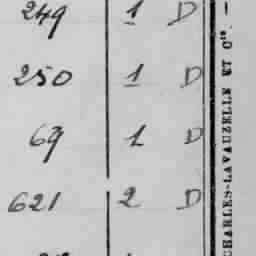 249 1 D
250 1 D
69 1 D
621 2 D
CHARLES-LAVAUZELLE ET Cie. —